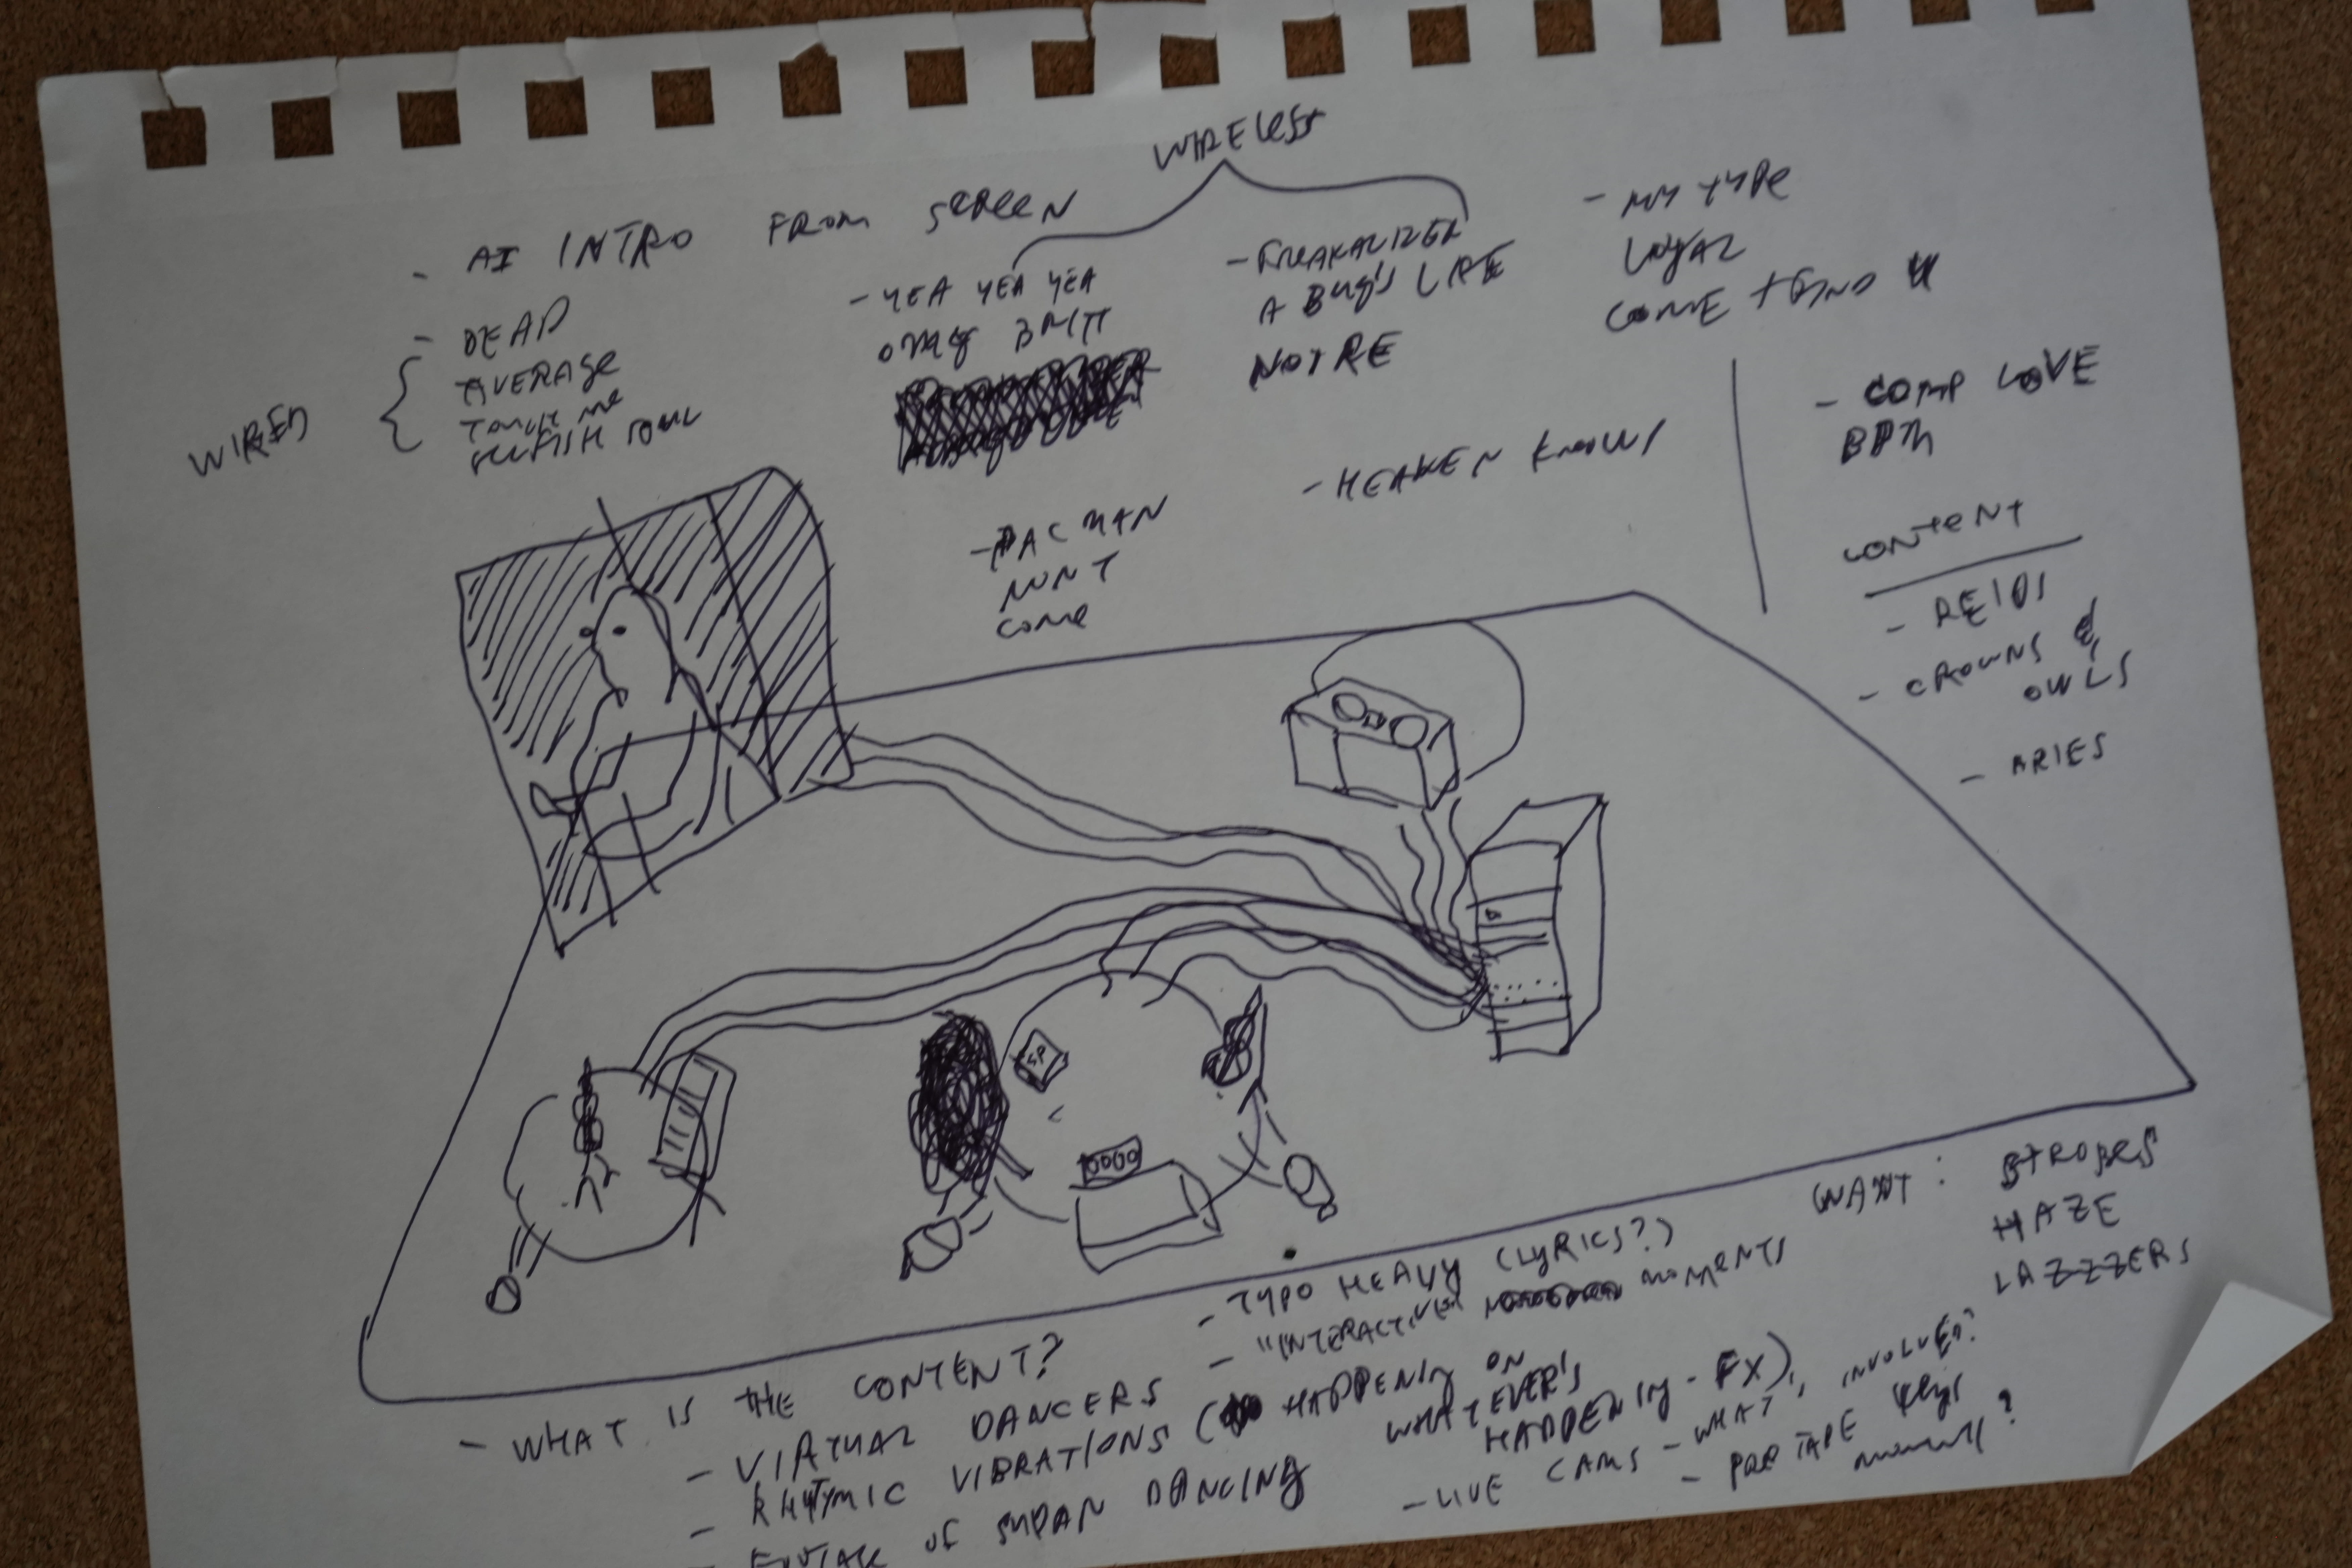 WIRELESS
- AI INTRO FROM SCREEN
WIRED
- DEAD
AVERAGE
TOUCH ME
SELFISH SOUL
- YEA YEA YEA
OMG BRITT
- FREAKALIZER
A BUG'S LIFE
NO1RE
- MY TYPE
LOYAL
COME + FIND U
- PAC MAN
MINT
COME
- HEAVEN KNOWS
- COMP LOVE
BPM
CONTENT
- REIDS
- CROWNS &
OWLS
- ARIES
SP
- WHAT IS THE CONTENT?
- VIRTUAL DANCERS
- RHYTYMIC VIBRATIONS (HAPPENING ON
WHATEVER'S
HAPPENING - FX)
OF SUDAN DANCING
- TYPO HEAVY (LYRICS?)
- "INTERACTIVE" MOMENTS
- LIVE CAMS - WHAT'S INVOLVED?
- PRE TAPE KEYS
MOMENT?
WANT: STROBES
HAZE
LAZZZERS